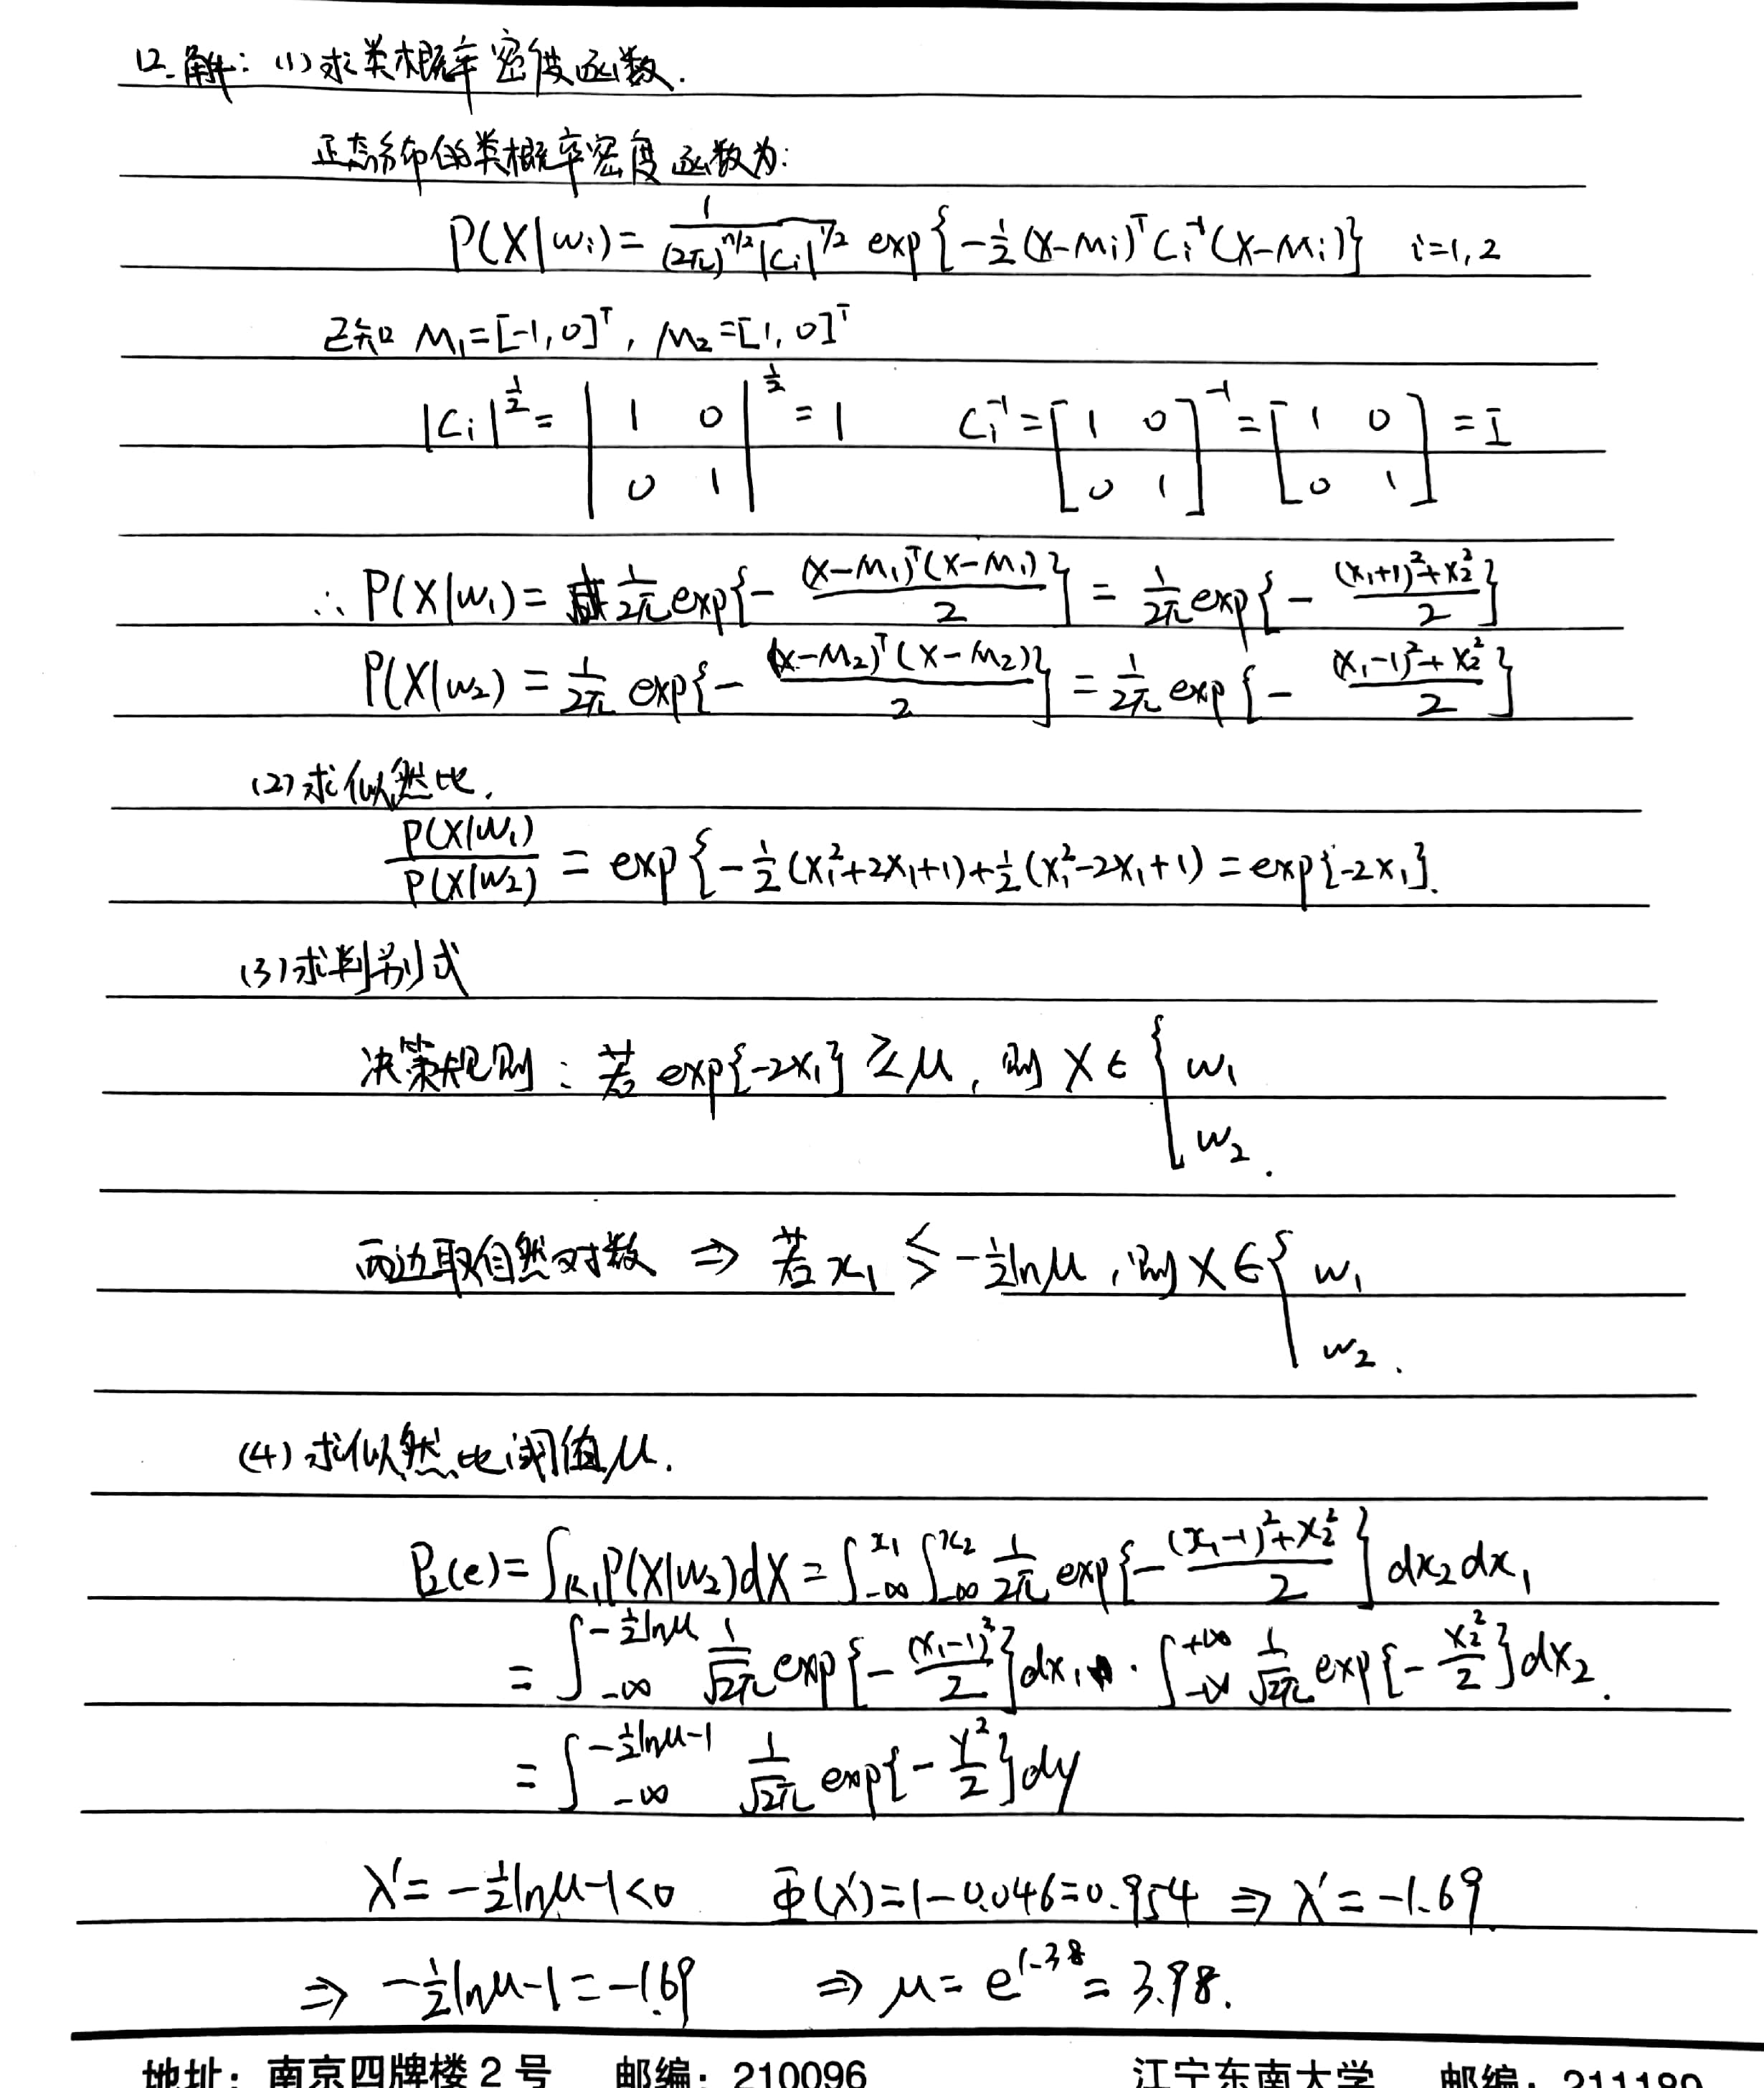 12.解：(1)求类概率密度函数.
正态分布的类概率密度函数为:
P(X|w_i)=\frac{1}{(2π)^{n/2}|C_i|^{1/2}} exp{-\frac{1}{2}(X-M_i)^T C_i^{-1}(X-M_i)} i=1,2
已知 M_1=[-1,0]^T, M_2=[1,0]^T
|C_i|^{\frac{1}{2}}=\begin{vmatrix}1&0\\0&1\end{vmatrix}^{\frac{1}{2}}=1 C_i^{-1}=\begin{bmatrix}1&0\\0&1\end{bmatrix}^{-1}=\begin{bmatrix}1&0\\0&1\end{bmatrix}=I
∴ P(X|w_1)=\frac{1}{2π}exp{-\frac{(X-M_1)^T(X-M_1)}{2}}=\frac{1}{2π}exp{-\frac{(x_1+1)^2+x_2^2}{2}}
P(X|w_2)=\frac{1}{2π}exp{-\frac{(X-M_2)^T(X-M_2)}{2}}=\frac{1}{2π}exp{-\frac{(x_1-1)^2+x_2^2}{2}}
(2)求似然比.
\frac{P(X|w_1)}{P(X|w_2)}=exp{-\frac{1}{2}(x_1^2+2x_1+1)+\frac{1}{2}(x_1^2-2x_1+1)=exp{-2x_1}.
(3)求判别式
决策规则：若 exp{-2x_1}≷μ, 则 X∈{w_1
w_2.
两边取自然对数 ⇒ 若x_1 ≶ -\frac{1}{2}lnμ, 则X∈{w_1
w_2.
(4)求似然比阈值μ.
P_2(e)=∫_{R_1}P(X|w_2)dX=∫_{-∞}^{x_1}∫_{-∞}^{x_2}\frac{1}{2π}exp{-\frac{(x_1-1)^2+x_2^2}{2}}dx_2dx_1
=∫_{-∞}^{-\frac{1}{2}lnμ}\frac{1}{\sqrt{2π}}exp{-\frac{(x_1-1)^2}{2}}dx_1·∫_{-∞}^{+∞}\frac{1}{\sqrt{2π}}exp{-\frac{x_2^2}{2}}dx_2.
=∫_{-∞}^{-\frac{1}{2}lnμ-1}\frac{1}{\sqrt{2π}}exp{-\frac{y^2}{2}}dy
λ'=-\frac{1}{2}lnμ-1<0 Φ(λ')=1-0.046=0.954 ⇒ λ'=-1.69.
⇒ -\frac{1}{2}lnμ-1=-1.69 ⇒ μ=e^{1.38}=3.98.
地址：南京四牌楼2号 邮编：210096 江宁东南大学 邮编：211189